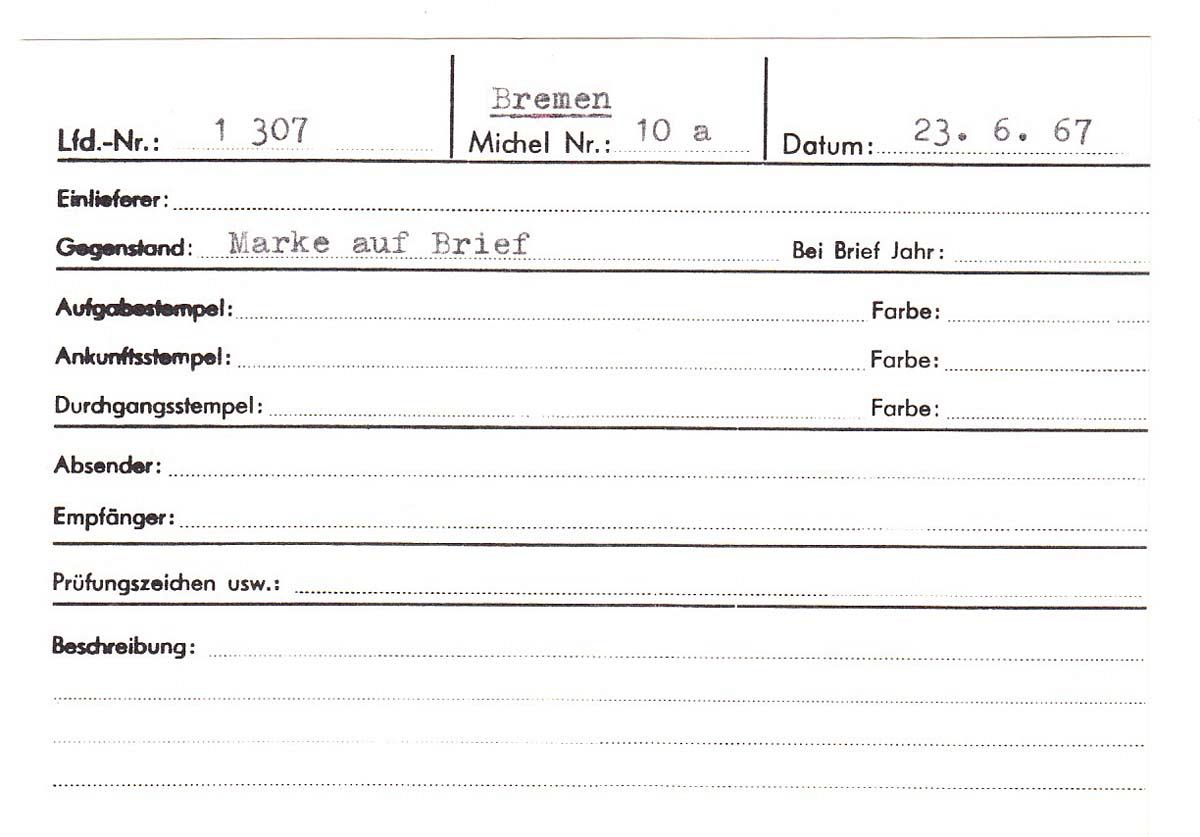 Bremen
Lfd.-Nr.: 1 307 Michel Nr.: 10 a Datum: 23. 6. 67
Einlieferer:
Gegenstand: Marke auf Brief Bei Brief Jahr:
Aufgabestempel: Farbe:
Ankunftsstempel: Farbe:
Durchgangsstempel: Farbe:
Absender:
Empfänger:
Prüfungszeichen usw.:
Beschreibung: